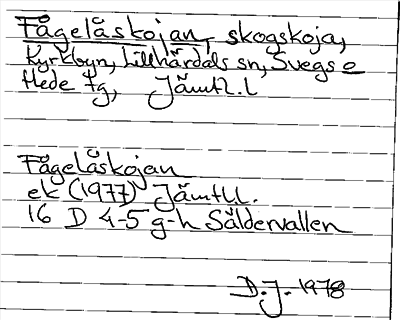 Fågelåskojan, skogskoja,
Kyrkbyn, Lillhärdals sn, Svegs o
Hede tg, Jämtl. l
Fågelåskojan
ek (1977) Jämtl l.
16 D 4-5 g-h Säldervallen
D.J. 1978